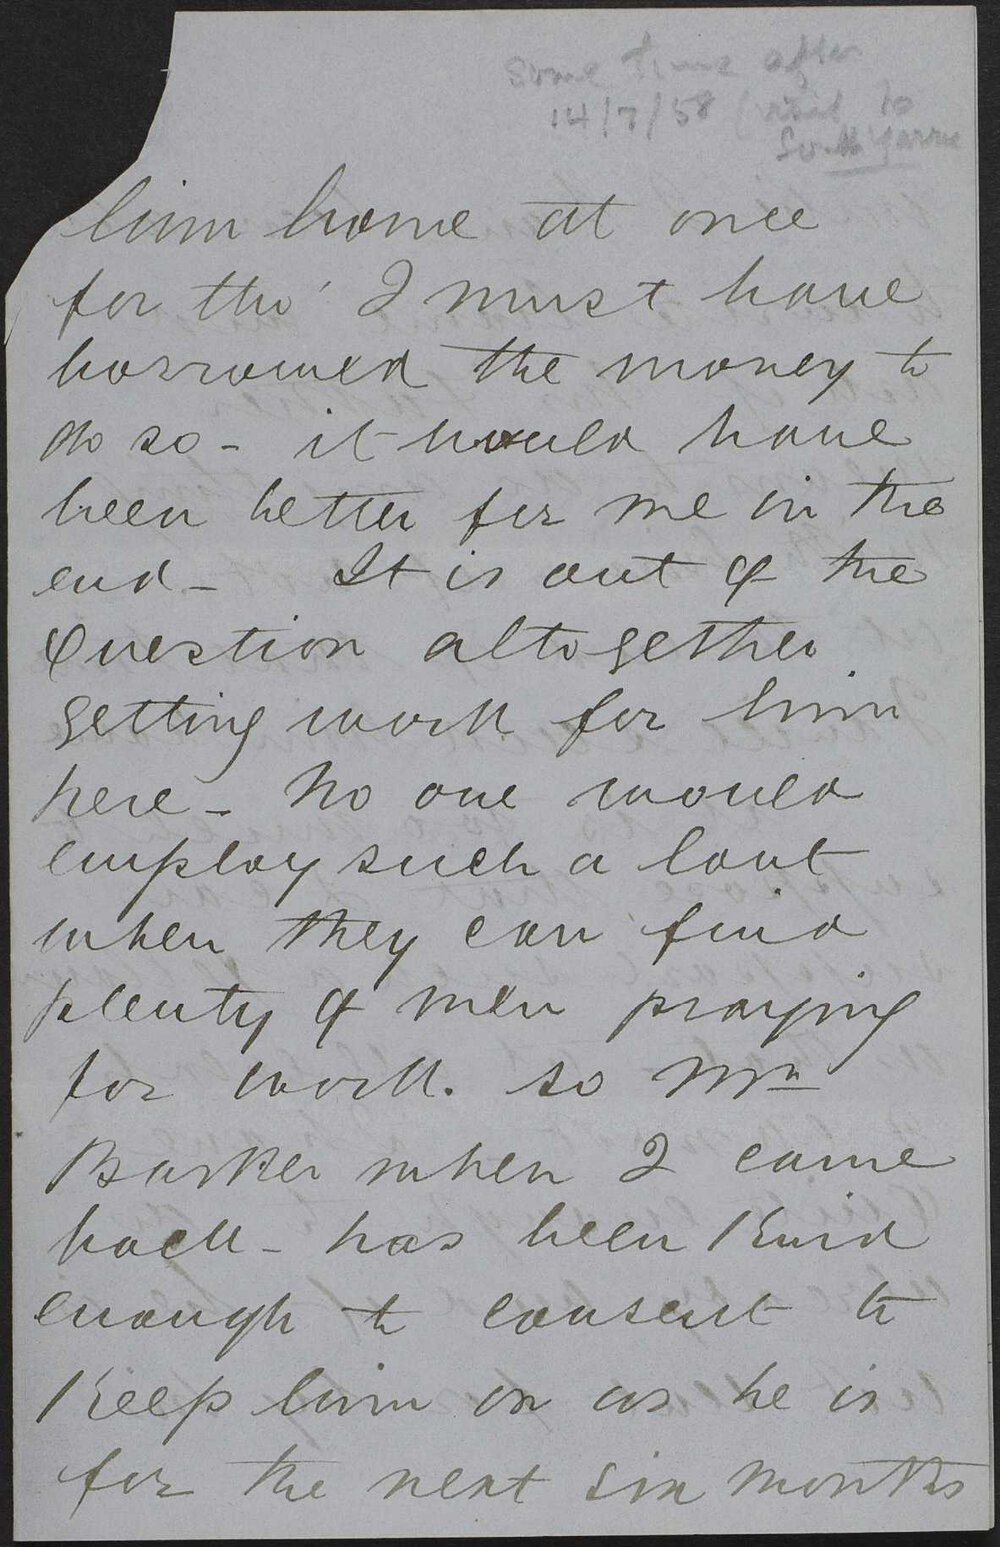 some time after
14/7/58 (visit to
South Yarra
him home at once
for tho' I must have
borrowed the money to
do so - it would have
been better for me in the
end - It is out of the
Question altogether
getting work for him
here - No one would
employ such a lout
when they can find
plenty of men praying
for work. So Mrs
Barker when I came
back - has been Kind
enough to consent to
Keep him on as he is
for the next six months